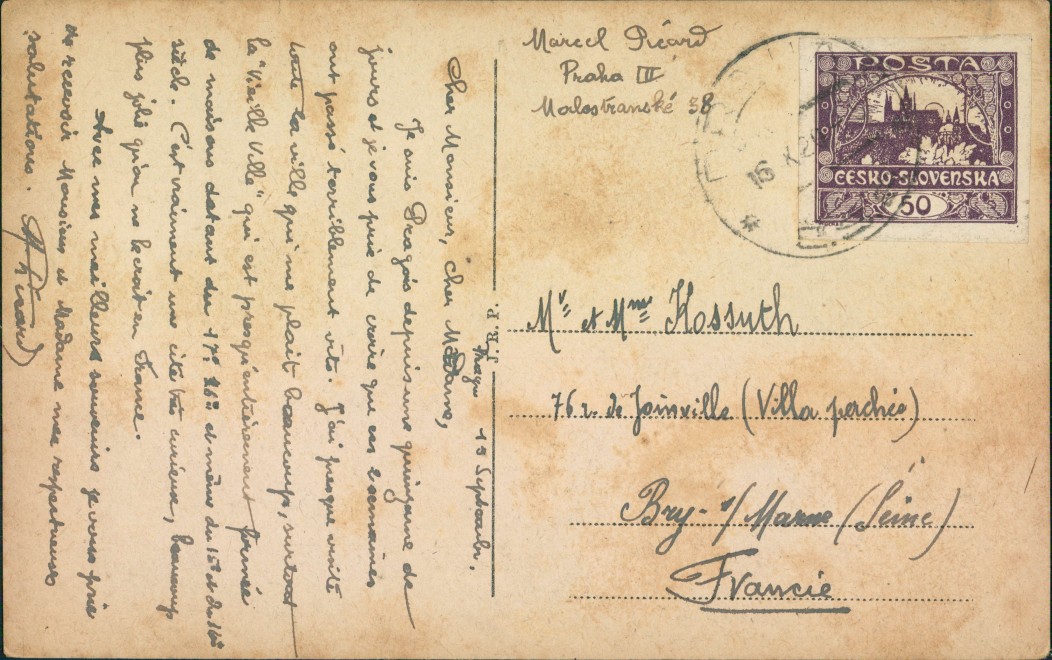 Marcel Picard
Praha III
Malostranské 38
POSTA
CESKO-SLOVENSKA
50
16
J. R. P.
Mr et Mme Kossuth
76 r. de Joinville (Villa perchée)
Bry-s/Marne (Seine)
Francie
Prague 15 Septembr.
Cher Monsieur, cher Madame,
Je suis Pragois depuis une quinzaine de
jours et je vous prie de croire que ces 2 semaines
ont passé terriblement vite. J'ai presque visité
toute la ville qui me plait beaucoup, surtout
la "Vieille Ville" qui est presqu'entièrement formée
de maisons datant du 17e 16e et même du 15e et du 14e
siècle. C'est vraiment une cité très curieuse, beaucoup
plus jolie qu'on ne le croit en France.
Avec mes meilleurs souvenirs je vous prie
de recevoir Monsieur et Madame mes respectueuses
salutations. MPicard